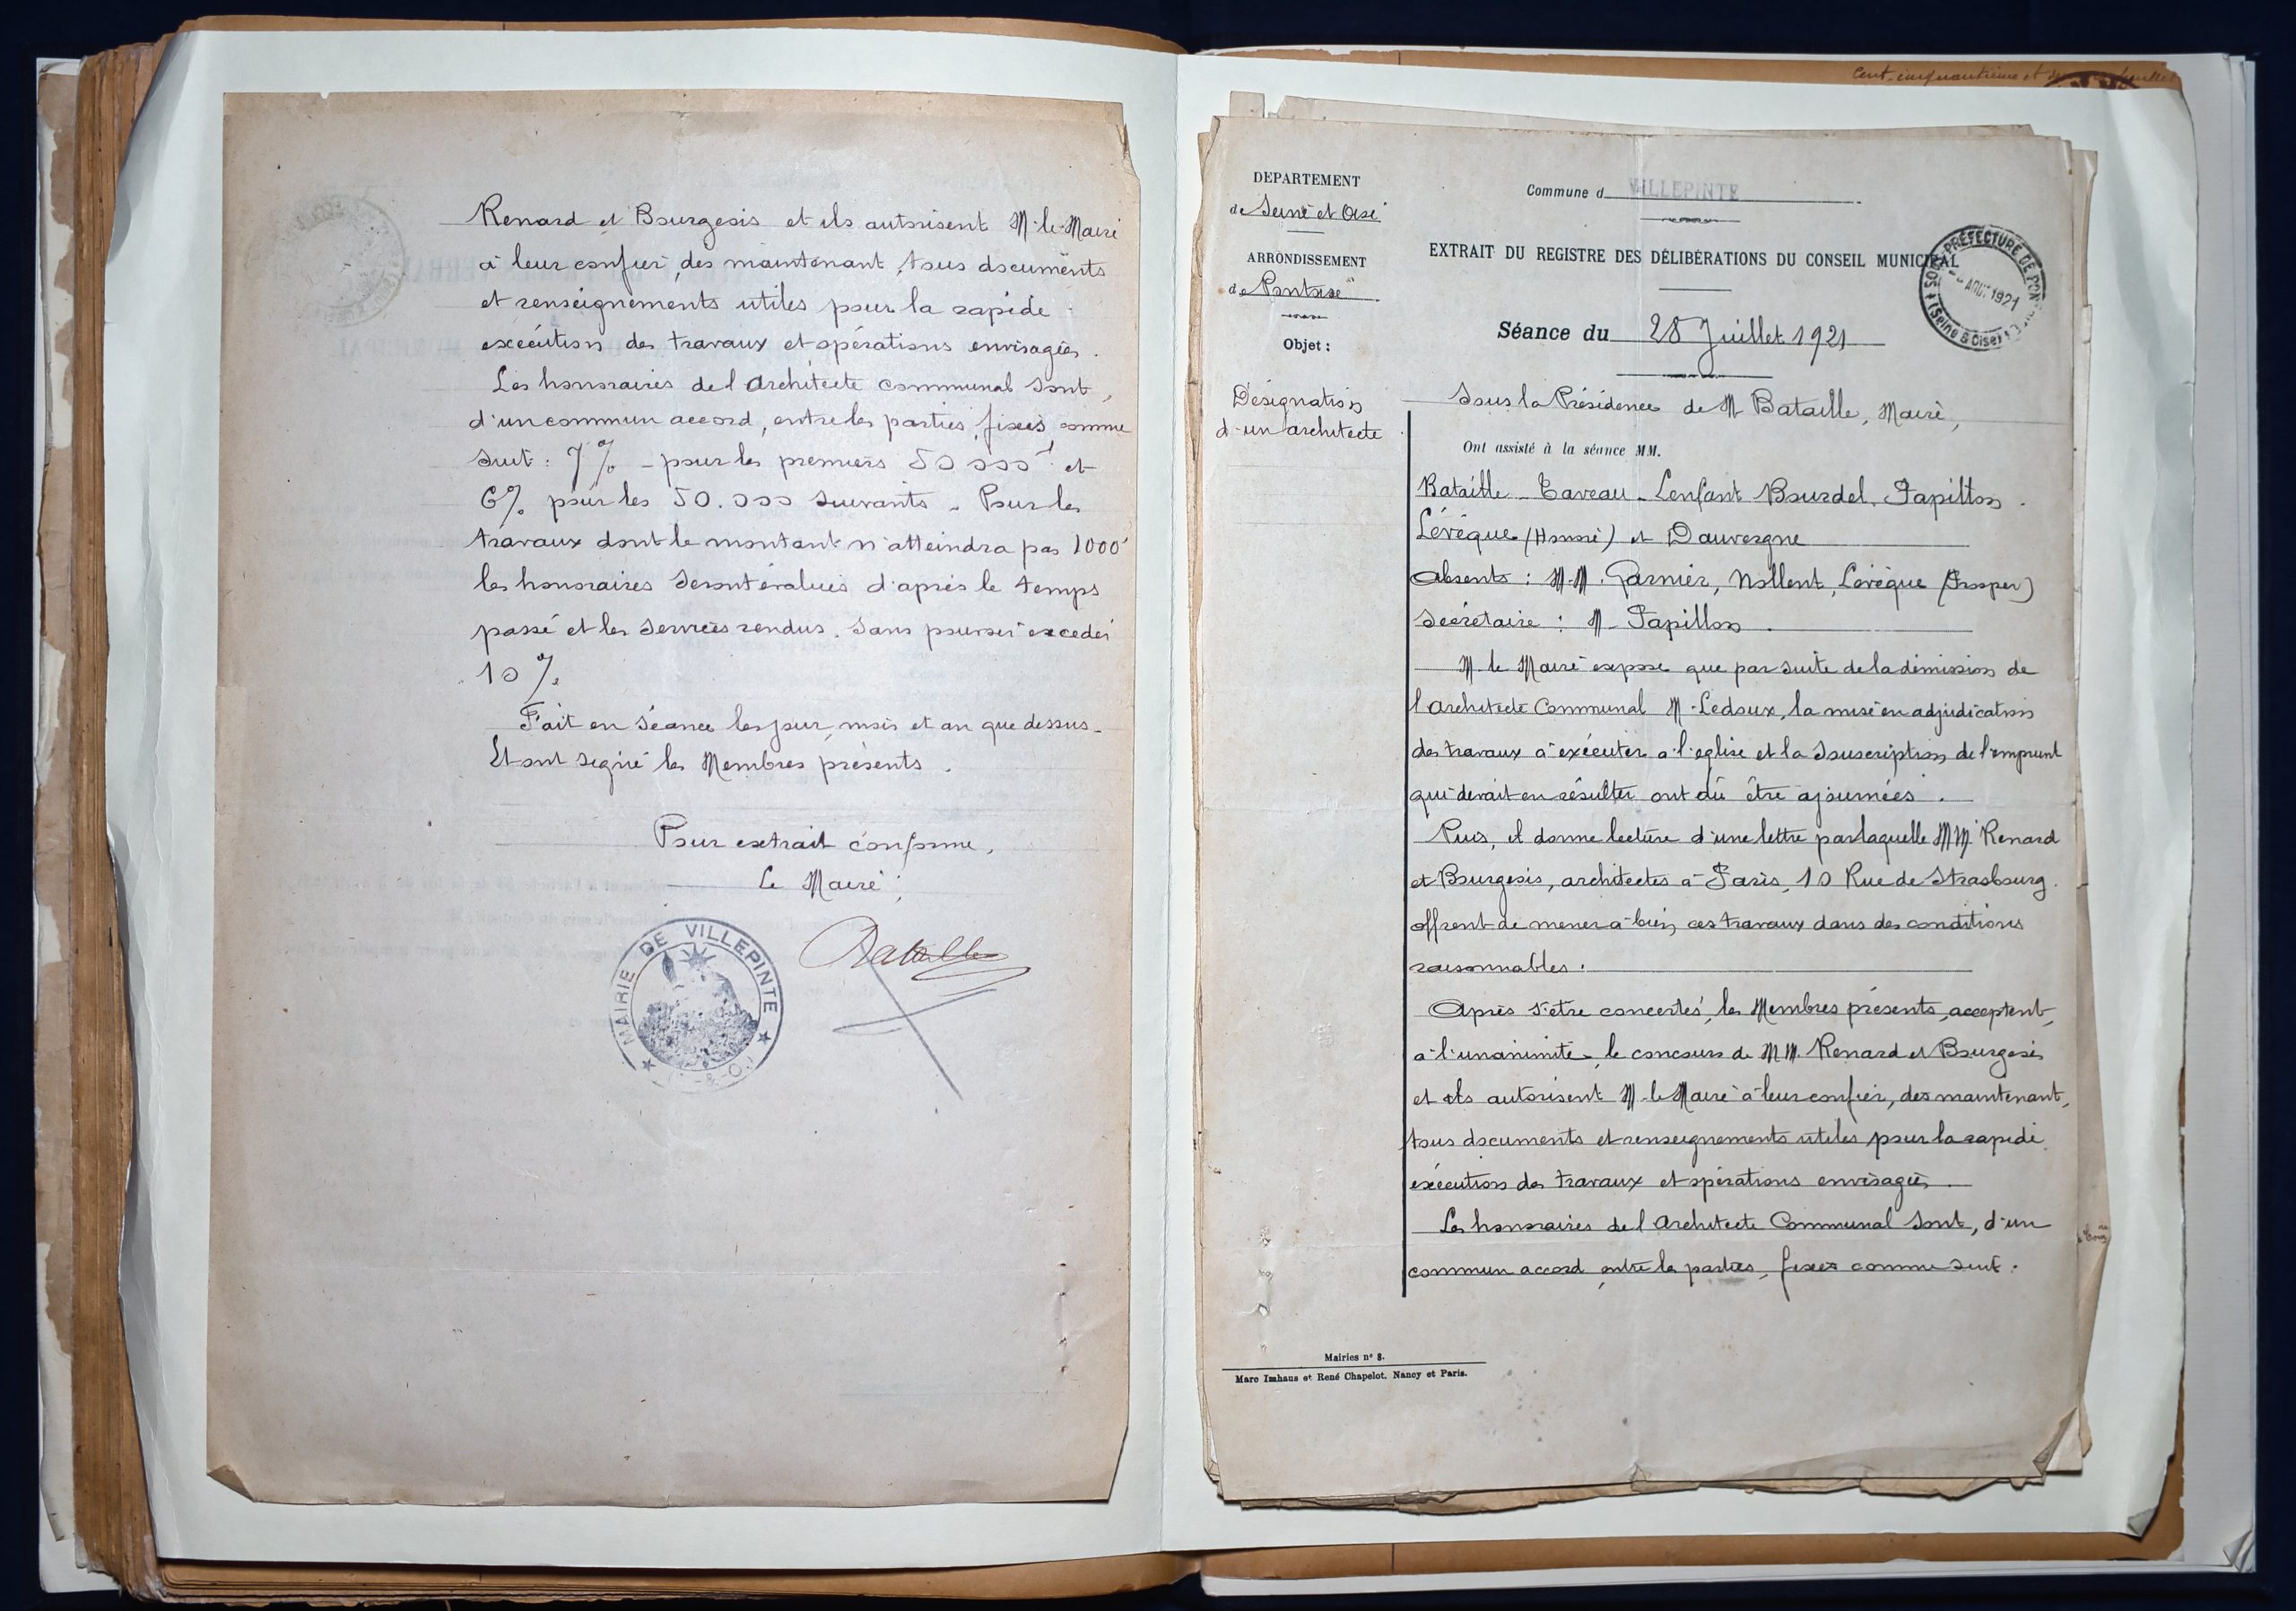 Renard et Bourgeois et ils autorisent M. le Maire
à leur confier, dès maintenant, tous documents
et renseignements utiles pour la rapide
exécution des travaux et opérations envisagées.
Les honoraires de l'Architecte communal sont,
d'un commun accord, entre les parties, fixés comme
suit : 7 % - pour les premiers 50 000 f et
6 % pour les 50.000 suivants. Pour les
travaux dont le montant n'atteindra pas 1000 f
les honoraires seront évalués d'après le temps
passé et les services rendus, sans pouvoir excéder
10 %
Fait en séance les jour, mois et an que dessus.
Et ont signé les Membres présents.
Pour extrait conforme,
Le Maire,
Bataille
MAIRIE DE VILLEPINTE
Cent cinquantième et feuillet
DEPARTEMENT
de Seine et Oise
ARRONDISSEMENT
de Pontoise
Objet :
Désignation
d'un architecte
Commune d VILLEPINTE
EXTRAIT DU REGISTRE DES DÉLIBÉRATIONS DU CONSEIL MUNICIPAL
SOUS-PRÉFECTURE DE PON
AOUT 1921
(Seine & Oise)
Séance du 28 Juillet 1921
Sous la Présidence de M Bataille, Maire,
Ont assisté à la séance MM.
Bataille - Taveau - Lenfant Bourdel. Papillon.
Lévêque (Honoré) et Dauvergne
Absents : M.M. Garnier, Nollent, Lévêque (Prosper)
Secrétaire : M. Papillon.
M. le Maire expose que par suite de la démission de
l'Architecte Communal M. Ledoux, la mise en adjudication
des travaux à exécuter à l'église et la souscription de l'emprunt
qui devait en résulter ont dû être ajournées.
Puis, il donne lecture d'une lettre par laquelle MM. Renard
et Bourgeois, architectes à Paris, 10 Rue de Strasbourg.
offrent de mener à bien ces travaux dans des conditions
raisonnables.
Après s'être concertés, les Membres présents, acceptent,
à l'unanimité, le concours de MM. Renard et Bourgeois
et ils autorisent M. le Maire à leur confier, dès maintenant,
tous documents et renseignements utiles pour la rapide
exécution des travaux et opérations envisagées.
Les honoraires de l'Architecte Communal sont, d'un
commun accord entre les parties, fixés comme suit :
Mairies nº 8.
Marc Imhaus et René Chapelot. Nancy et Paris.